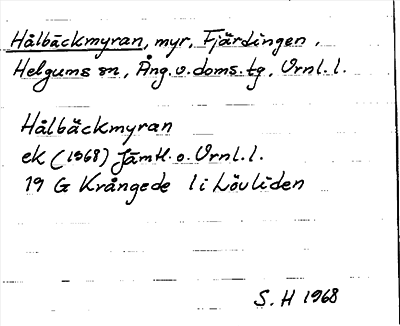 Hålbäckmyran, myr, Fjärdingen,
Helgums sn, Ång. v. doms. tg, Vrnl. l.
Hålbäckmyran
ek (1968) Jämtl. o. Vrnl. l.
19 G Krångede l i Lövliden
S. H 1968